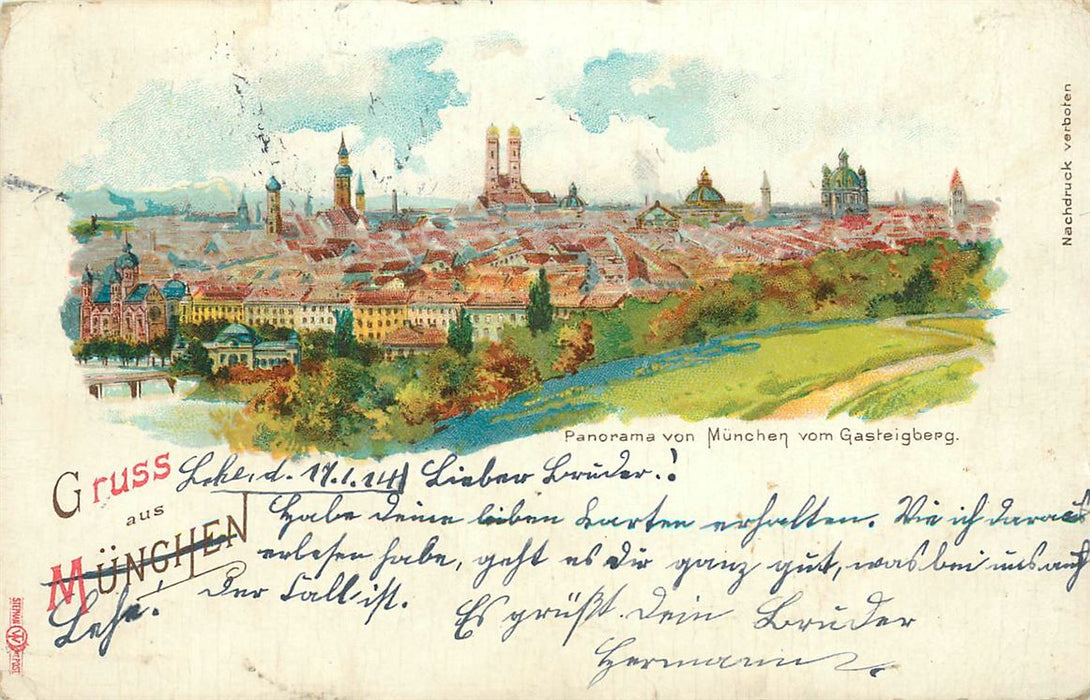 Nachdruck verboten
Panorama von München vom Gasteigberg.
Gruss
aus
MÜNCHEN
Lehe!
Lehe, d. 17.1.14 Lieber Bruder!
Habe deine lieben Karten erhalten. Wie ich daraus
erlesen habe, geht es dir ganz gut, was bei uns auch
der Fall ist. Es grüßt Dein Bruder
Hermann